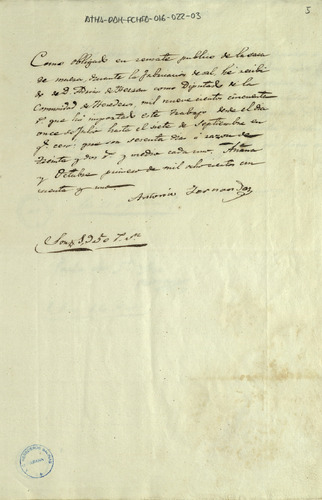 ATHA-DAH-FCHFD-016-022-03
5
Como obligado en remate publico de la casa
de muera, durante la fabricacion de sal, he recibi
do de D. de Herran como Diputado de la
Comunidad de Herederos, mil nueve cientos cincuenta
r.s que ha importado este trabajo desde el dia
once de Julio hasta el siete de Septiembre en
q.e cesó, que son sesenta dias á razon de
treinta y dos r.s y medio cada uno. Añana
y Octubre primero de mil ochocientos cin
cuenta y uno
Antonio Fernandez
Son 1950 r.s